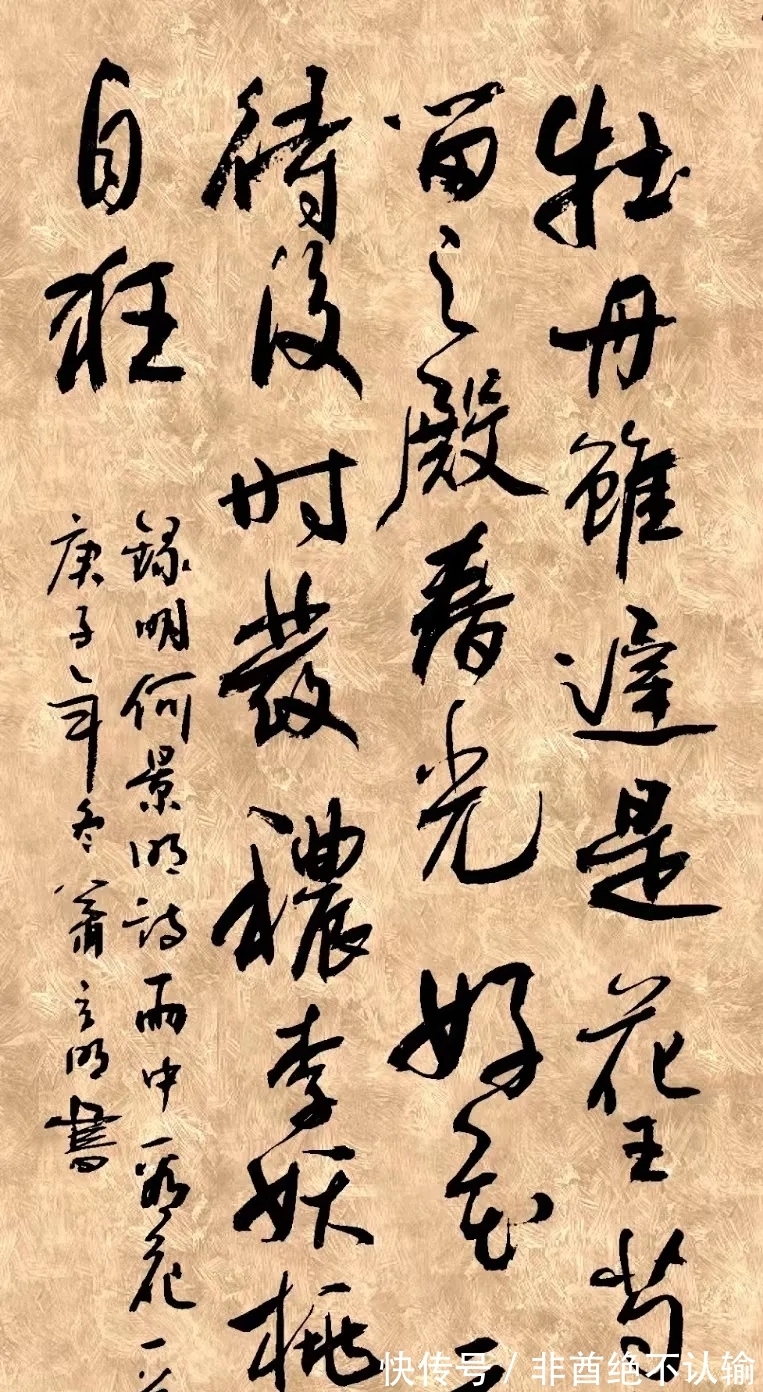 牡丹雖遲是花王芍
留之殿春光好
待後時發穠李妖桃
自狂
錄明何景明詩雨中看花一
庚子年冬蕭明書
快传号 / 非酋绝不认输